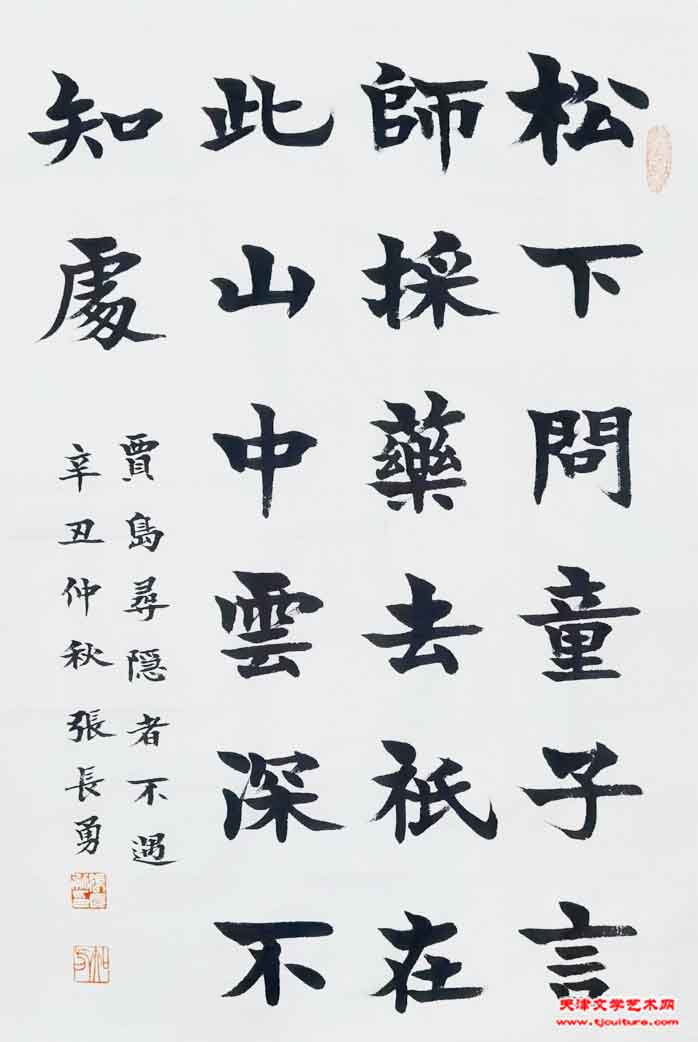 松下問童子言
師採藥去祇在
此山中雲深不
知處
賈島尋隱者不遇
辛丑仲秋張長勇
天津文学艺术网
www.tjculture.com